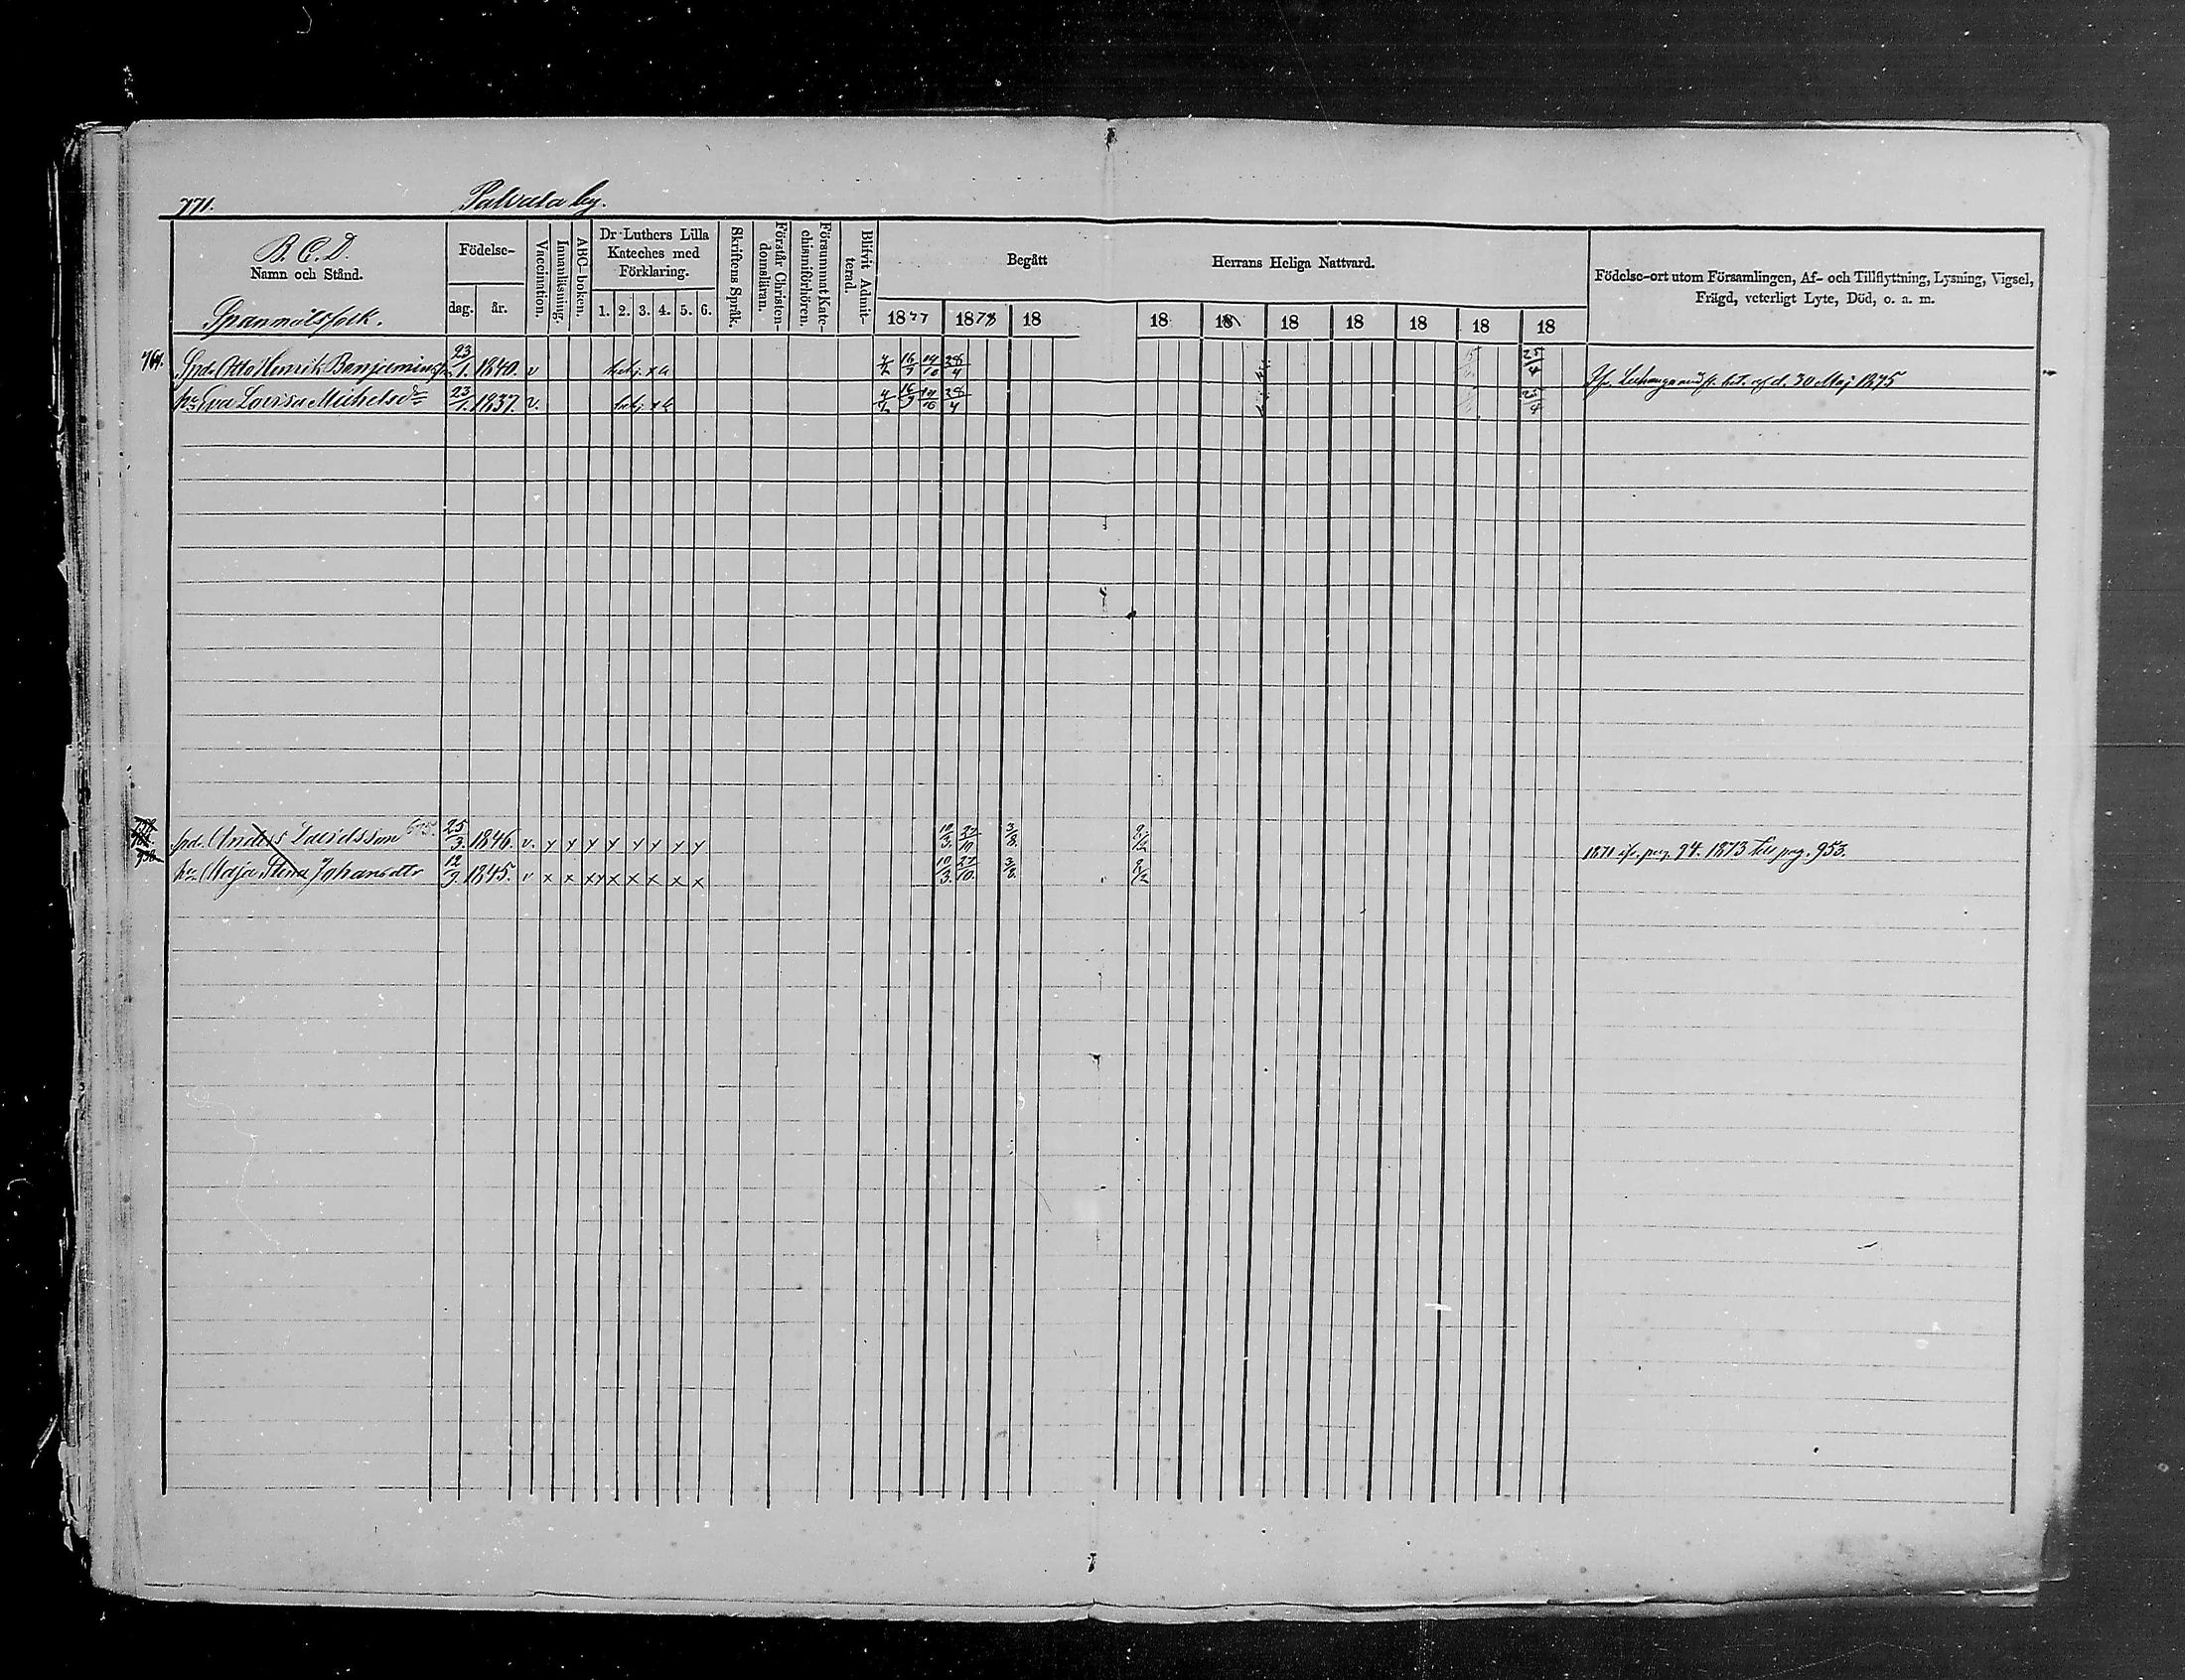 771. Palvala by.
B. C. D.
Namn och Stånd.
Spanmålsfolk.
Födelse-
dag. år.
Vaccination.
Innanläsning.
ABC-boken.
Dr Luthers Lilla
Kateches med
Förklaring.
1. 2. 3. 4. 5. 6.
Skriftens Språk.
Förstår Christen-
domsläran.
Försummat Kate-
chismiförhören.
Blifvit Admit-
terad.
Begått Herrans Heliga Nattvard.
1877 1878 18 18 18 18 18 18 18 18
Födelse-ort utom Församlingen, Af- och Tillflyttning, Lysning, Vigsel,
Frägd, veterligt Lyte, Död, o. a. m.
764. Spde Otto Henrik Benjeminsson 23/1. 1840. v 16/9 14/10 28/4 25/4 bet. af d. 30 Maj 1875
hu Eva Lovisa Michelsdr 23/1. 1837. v. 16/9 14/10 28/4 25/4
spde Anders Davidsson 675. 25/3. 1846. v. x x x x x x x x 10/3. 27/10. 3/8. 8/12 1871 ifr. pag. 94. 1873 till pag. 953.
hu Maja Stina Johansdtr 12/9 1845. v x x x x x x x x x 10/3. 27/10. 3/8. 8/12